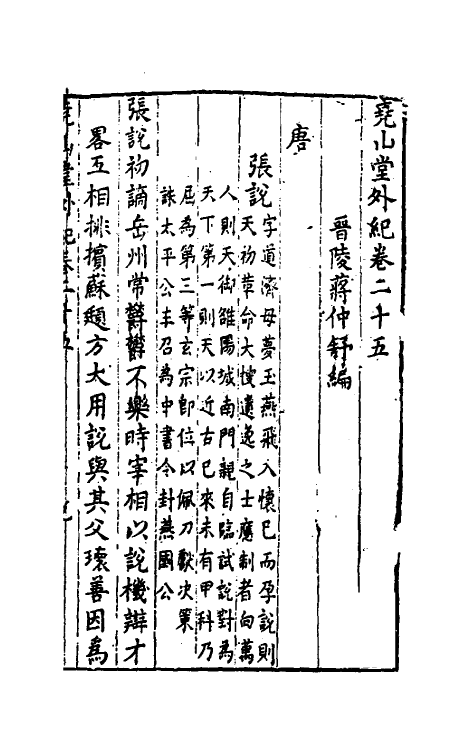 堯山堂外紀卷二十五
晉陵蔣仲舒編
唐
張說字道濟母夢玉燕飛入懷已而孕說則
天初革命大搜遺逸之士應制者向萬
人則天御雒陽城南門親自臨試說對為
天下第一則天以近古已來未有甲科乃
屈為第二等玄宗即位以佩刀獻決策
誅太平公主召為中書令封燕國公
張說初謫岳州常欝欝不樂時宰相以說機辯才
畧互相排擯蘇頲方大用說與其父瓌善因為
堯山堂外紀卷二十五